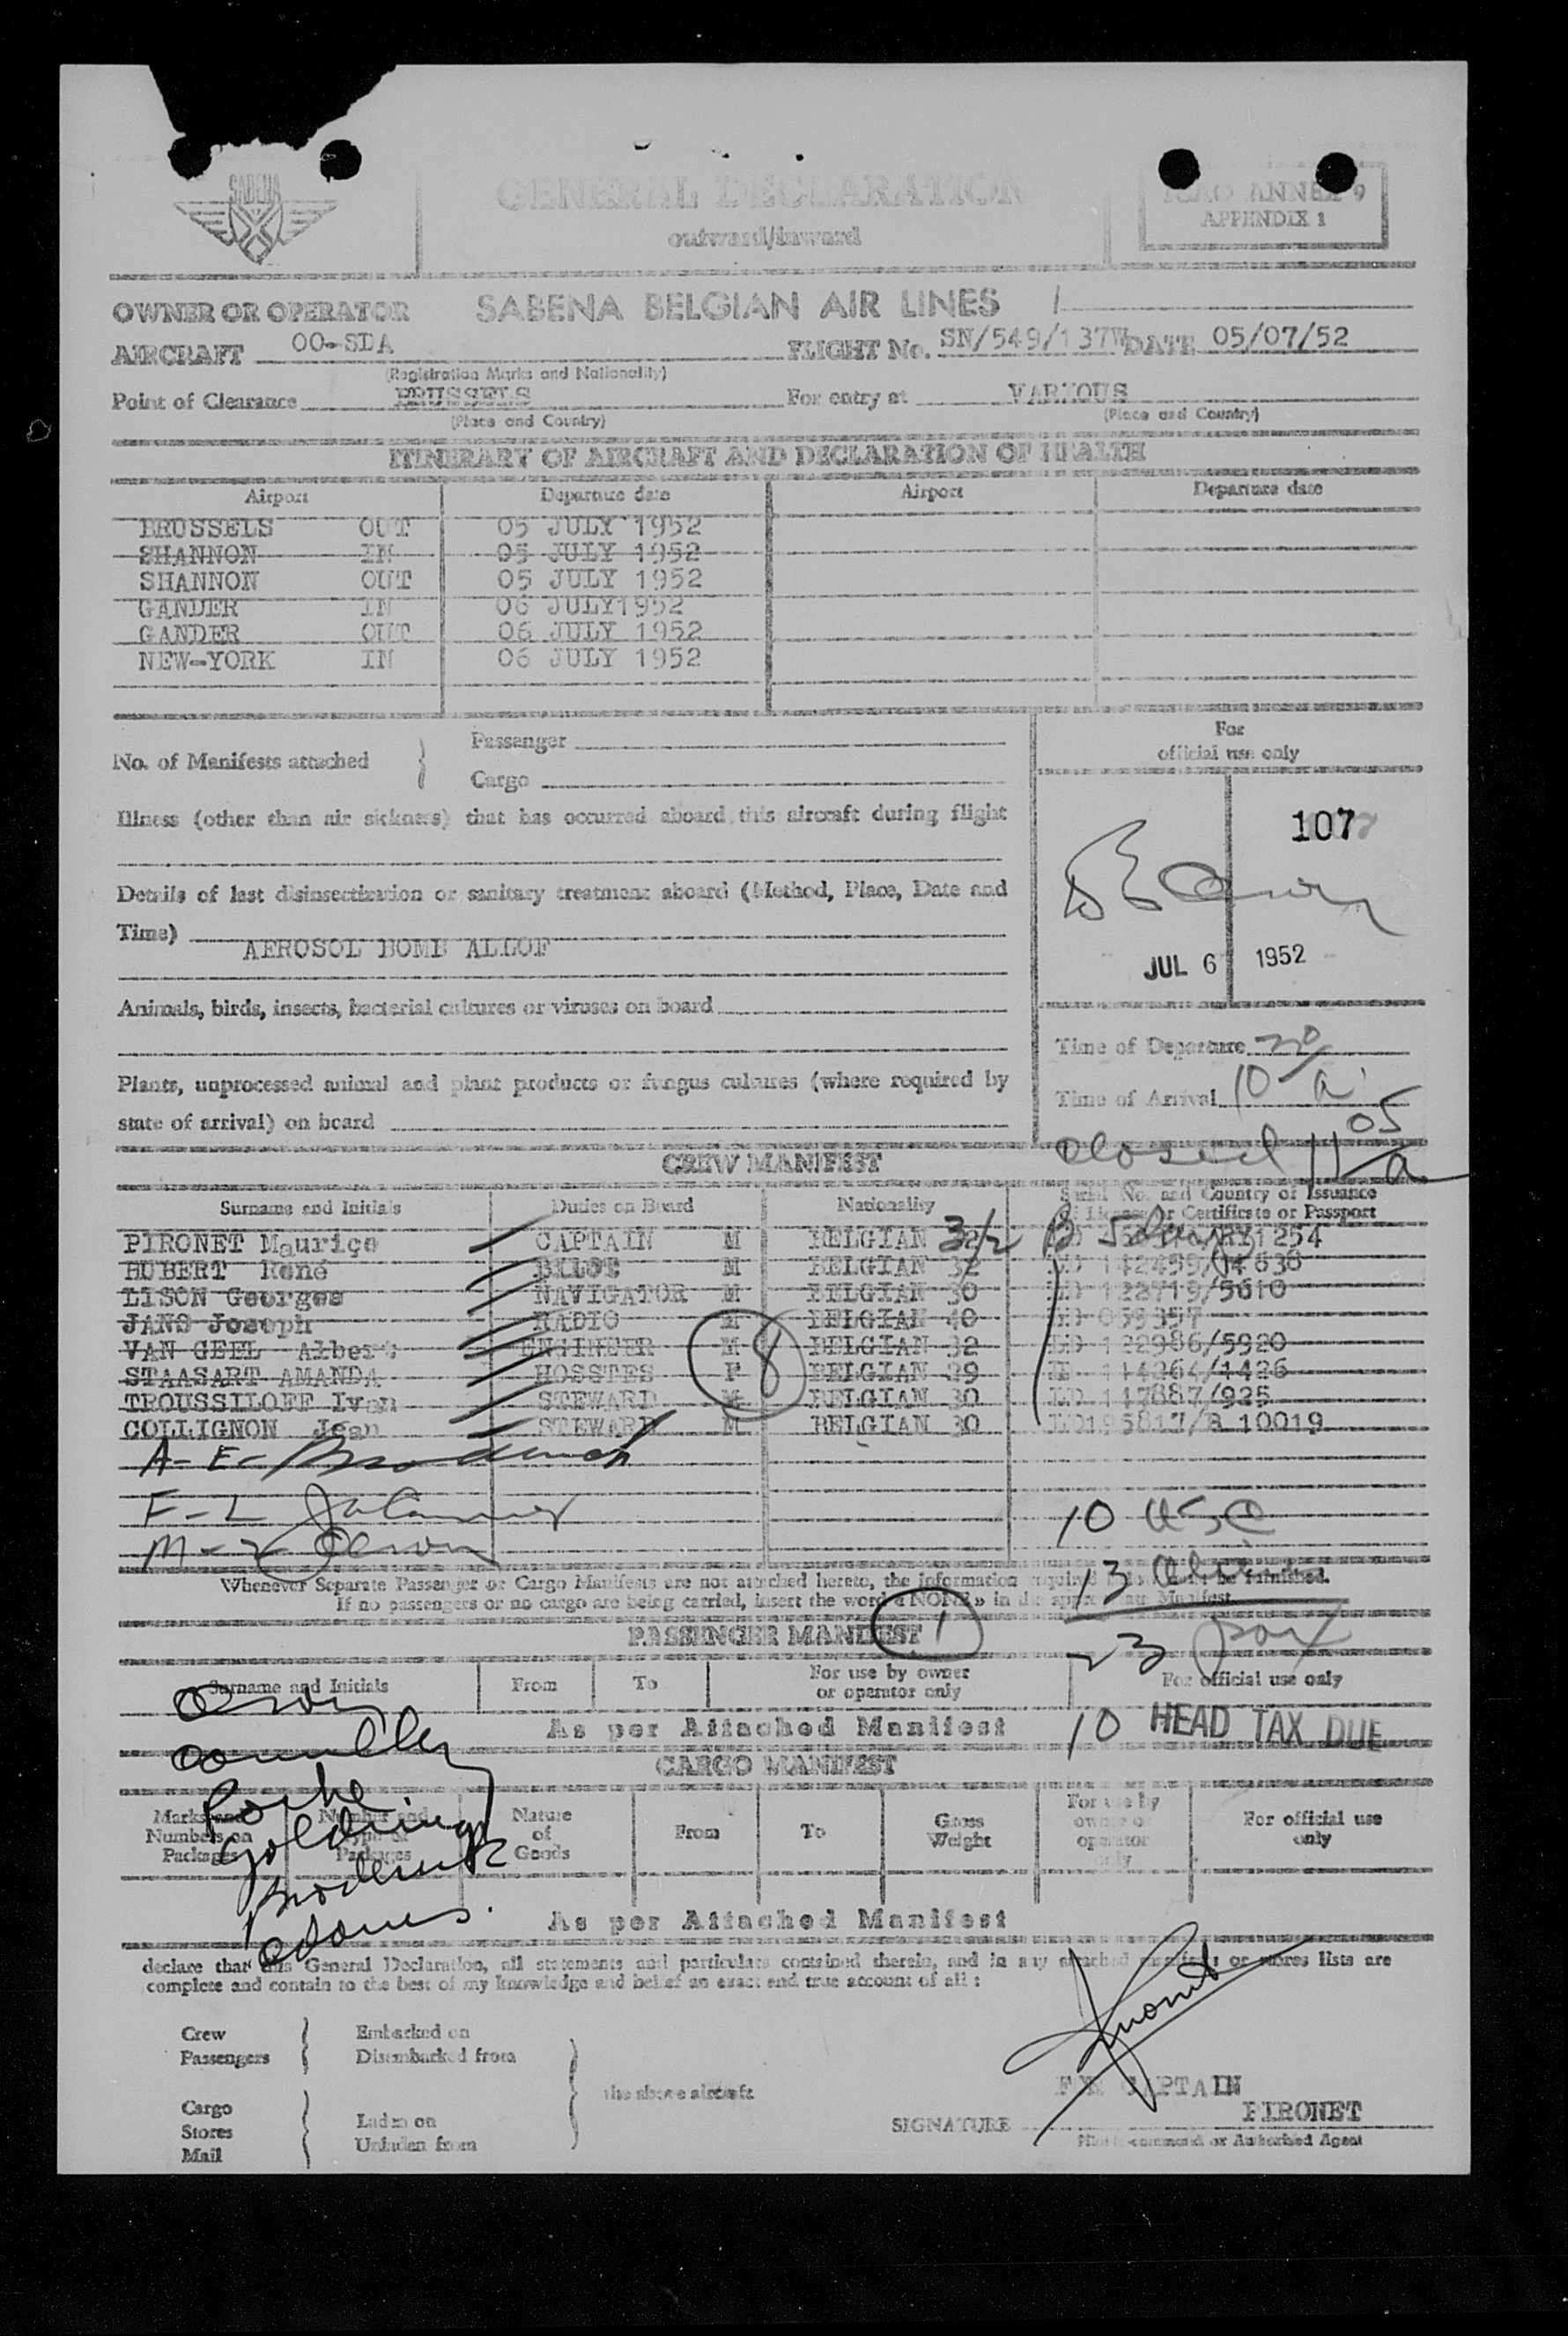 SABENA
GENERAL DECLARATION
outward/inward
ICAO ANNEX 9
APPENDIX 1
OWNER OR OPERATOR SABENA BELGIAN AIR LINES
AIRCRAFT OO-SDA FLIGHT No. SN/549/137W DATE 05/07/52
(Registration Marks and Nationality)
Point of Clearance BRUSSELS For entry at VARIOUS
(Place and Country) (Place and Country)
ITINERARY OF AIRCRAFT AND DECLARATION OF HEALTH
Airport Departure date Airport Departure date
BRUSSELS OUT 05 JULY 1952
SHANNON IN 05 JULY 1952
SHANNON OUT 05 JULY 1952
GANDER IN 06 JULY1952
GANDER OUT 06 JULY 1952
NEW-YORK IN 06 JULY 1952
No. of Manifests attached
Passenger
Cargo
For
official use only
Illness (other than air sickness) that has occurred aboard this aircraft during flight
107
Details of last disinsectization or sanitary treatment aboard (Method, Place, Date and
Time) AEROSOL BOMB ALLOF
JUL 6 1952
Animals, birds, insects, bacterial cultures or viruses on board
Time of Departure
Plants, unprocessed animal and plant products or fungus cultures (where required by
state of arrival) on board
Time of Arrival 10 a
closed 11 05 a
CREW MANIFEST
Surname and Initials Duties on Board Nationality Serial No. and Country of Issuance
of License or Certificate or Passport
PIRONET Maurice CAPTAIN M BELGIAN 32 1254
HUBERT René PILOT M BELGIAN 32
LISON Georges NAVIGATOR M BELGIAN 30 /5610
JANS Joseph RADIO M BELGIAN 40 059357
VAN GEEL Albert ENGINEER M BELGIAN 32 122986/5920
STAASART AMANDA HOSSTES F BELGIAN 29 114264/1426
TROUSSILOFF Ivan STEWARD M BELGIAN 30 147887/925
COLLIGNON Jean STEWARD M BELGIAN 30 195817/B 10019
8
A-E-
F-L
10 USC
Whenever Separate Passenger or Cargo Manifests are not attached hereto, the information required must be furnished.
13
If no passengers or no cargo are being carried, insert the word « NONE » in the appropriate Manifest.
PASSENGER MANIFEST
1
23 pax
Surname and Initials From To For use by owner
or operator only For official use only
As per Attached Manifest
10 HEAD TAX DUE
CARGO MANIFEST
Connolly
Goldring
Broderick
Adams
Marks and
Numbers on
Packages Number and
Type of
Packages Nature
of
Goods From To Gross
Weight For use by
owner or
operator
only For official use
only
As per Attached Manifest
declare that this General Declaration, all statements and particulars contained therein, and in any attached manifests or stores lists are
complete and contain to the best of my knowledge and belief an exact and true account of all :
Crew
Passengers
Embarked on
Disembarked from
the above aircraft
Cargo
Stores
Mail
Laden on
Unladen from
Pironet
CAPTAIN
PIRONET
SIGNATURE
Pilot in command or Authorised Agent